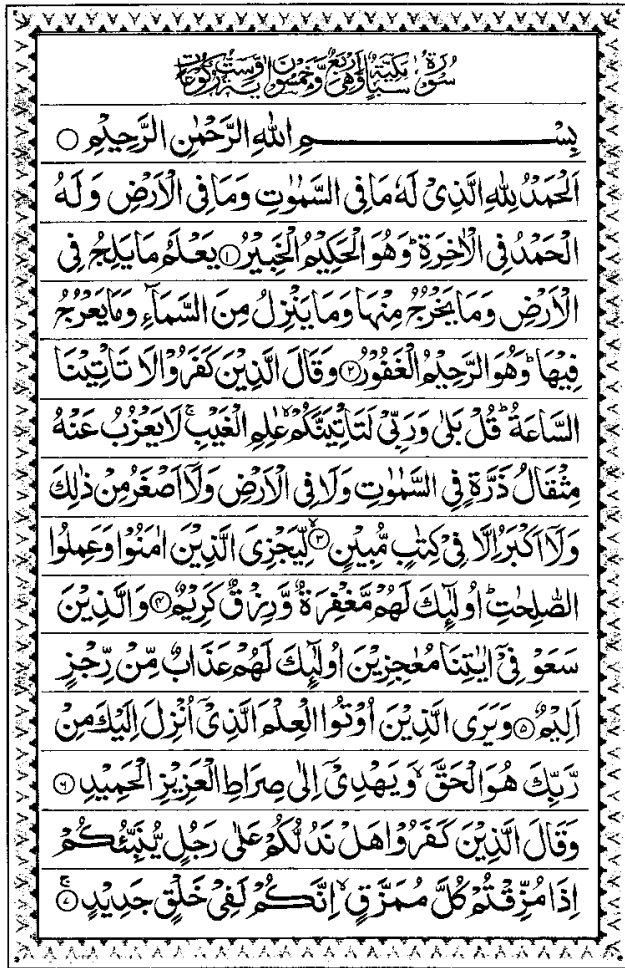 سُوْرَةُ سَبَاٍ مَكِّيَّةٌ وَّهِيَ اَرْبَعٌ وَّخَمْسُوْنَ اٰيَةً وَّسِتُّ رُكُوْعَاتٍ
بِسْمِ اللهِ الرَّحْمٰنِ الرَّحِيْمِ ○
اَلْحَمْدُ لِلّٰهِ الَّذِيْ لَهٗ مَا فِي السَّمٰوٰتِ وَمَا فِي الْاَرْضِ وَلَهُ
الْحَمْدُ فِي الْاٰخِرَةِ ؕ وَهُوَ الْحَكِيْمُ الْخَبِيْرُ ۝۱ يَعْلَمُ مَا يَلِجُ فِي
الْاَرْضِ وَمَا يَخْرُجُ مِنْهَا وَمَا يَنْزِلُ مِنَ السَّمَآءِ وَمَا يَعْرُجُ
فِيْهَا ؕ وَهُوَ الرَّحِيْمُ الْغَفُوْرُ ۝۲ وَقَالَ الَّذِيْنَ كَفَرُوْا لَا تَاْتِيْنَا
السَّاعَةُ ؕ قُلْ بَلٰى وَرَبِّيْ لَتَاْتِيَنَّكُمْ ۙ عٰلِمِ الْغَيْبِ ۚ لَا يَعْزُبُ عَنْهُ
مِثْقَالُ ذَرَّةٍ فِي السَّمٰوٰتِ وَلَا فِي الْاَرْضِ وَلَآ اَصْغَرُ مِنْ ذٰلِكَ
وَلَآ اَكْبَرُ اِلَّا فِيْ كِتٰبٍ مُّبِيْنٍ ۝۳ۙ لِّيَجْزِيَ الَّذِيْنَ اٰمَنُوْا وَعَمِلُوا
الصّٰلِحٰتِ ؕ اُولٰٓئِكَ لَهُمْ مَّغْفِرَةٌ وَّرِزْقٌ كَرِيْمٌ ۝۴ وَالَّذِيْنَ
سَعَوْ فِيْٓ اٰيٰتِنَا مُعٰجِزِيْنَ اُولٰٓئِكَ لَهُمْ عَذَابٌ مِّنْ رِّجْزٍ
اَلِيْمٌ ۝۵ وَيَرَى الَّذِيْنَ اُوْتُوا الْعِلْمَ الَّذِيْٓ اُنْزِلَ اِلَيْكَ مِنْ
رَّبِّكَ هُوَ الْحَقَّ ۙ وَيَهْدِيْٓ اِلٰى صِرَاطِ الْعَزِيْزِ الْحَمِيْدِ ۝۶
وَقَالَ الَّذِيْنَ كَفَرُوْا هَلْ نَدُلُّكُمْ عَلٰى رَجُلٍ يُّنَبِّئُكُمْ
اِذَا مُزِّقْتُمْ كُلَّ مُمَزَّقٍ ۙ اِنَّكُمْ لَفِيْ خَلْقٍ جَدِيْدٍ ۝۷ۚ